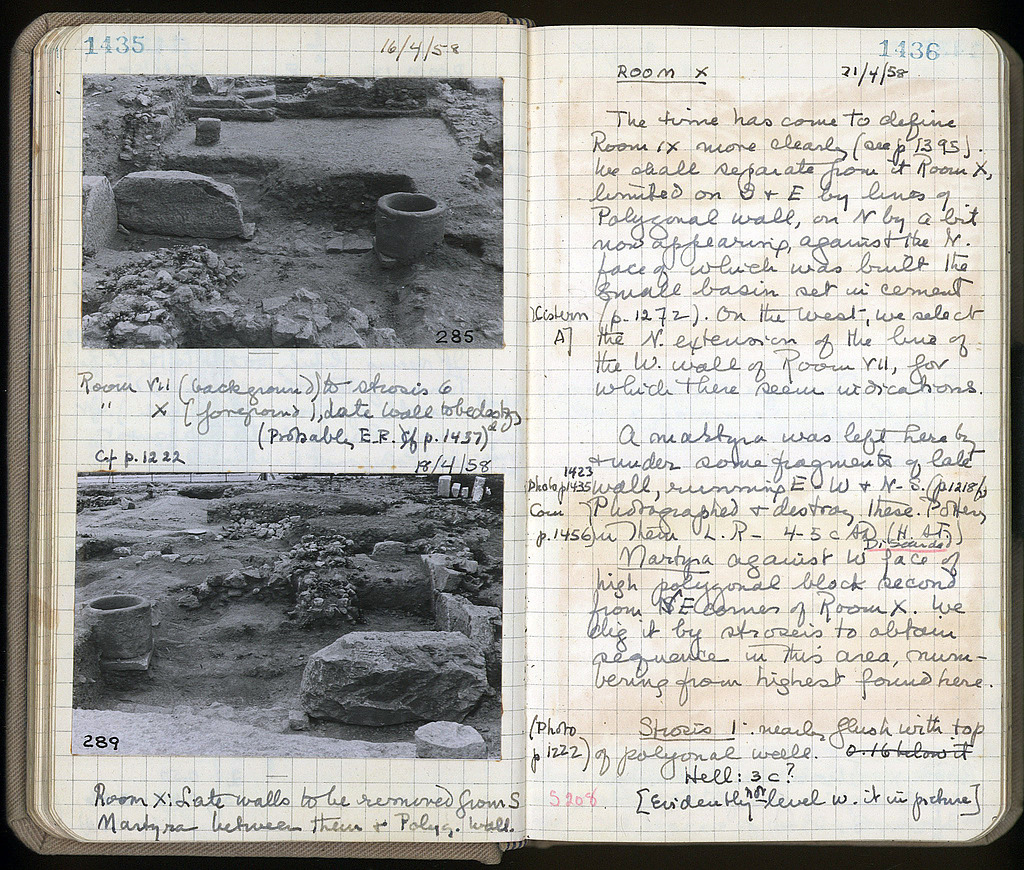 1435
16/4/58
285
Room VII (background) to strosis 6
" X (foreground), late wall to be destroyed
(Probably E.R. Cf p. 1437)
Cf p. 1222
18/4/58
289
Room X: Late walls to be removed from S
Martyra between them + Polyg. wall.
1436
ROOM X
21/4/58
The time has come to define
Room IX more clearly (see p 1395).
We shall separate from it Room X,
limited on S + E by lines of
Polygonal wall, on N by a bit
now appearing, against the N.
face of which was built the
small basin set in cement
[Cistern A]
(p. 1272). On the west, we select
the N. extension of the line of
the W. wall of Room VII, for
which there seem indications.
A martyra was left here by
+ under some fragments of late
1423
Photo p1435
wall, running E W + N-S. (p1218
Photographed + destroy these. Pottery
Coin
p. 1456
in them L.R - 4-5 c AD (H.S.T.)
Discarded
Martyra against W face of
high polygonal block second
from SE corner of Room X. We
dig it by stroseis to obtain
sequence in this area, num-
bering from highest found here.
(Photo
p 1222)
Strosis 1: nearly flush with top
of polygonal wall. 0.16 below it
Hell: 3 c?
S208
[Evidently not level w. it in picture]